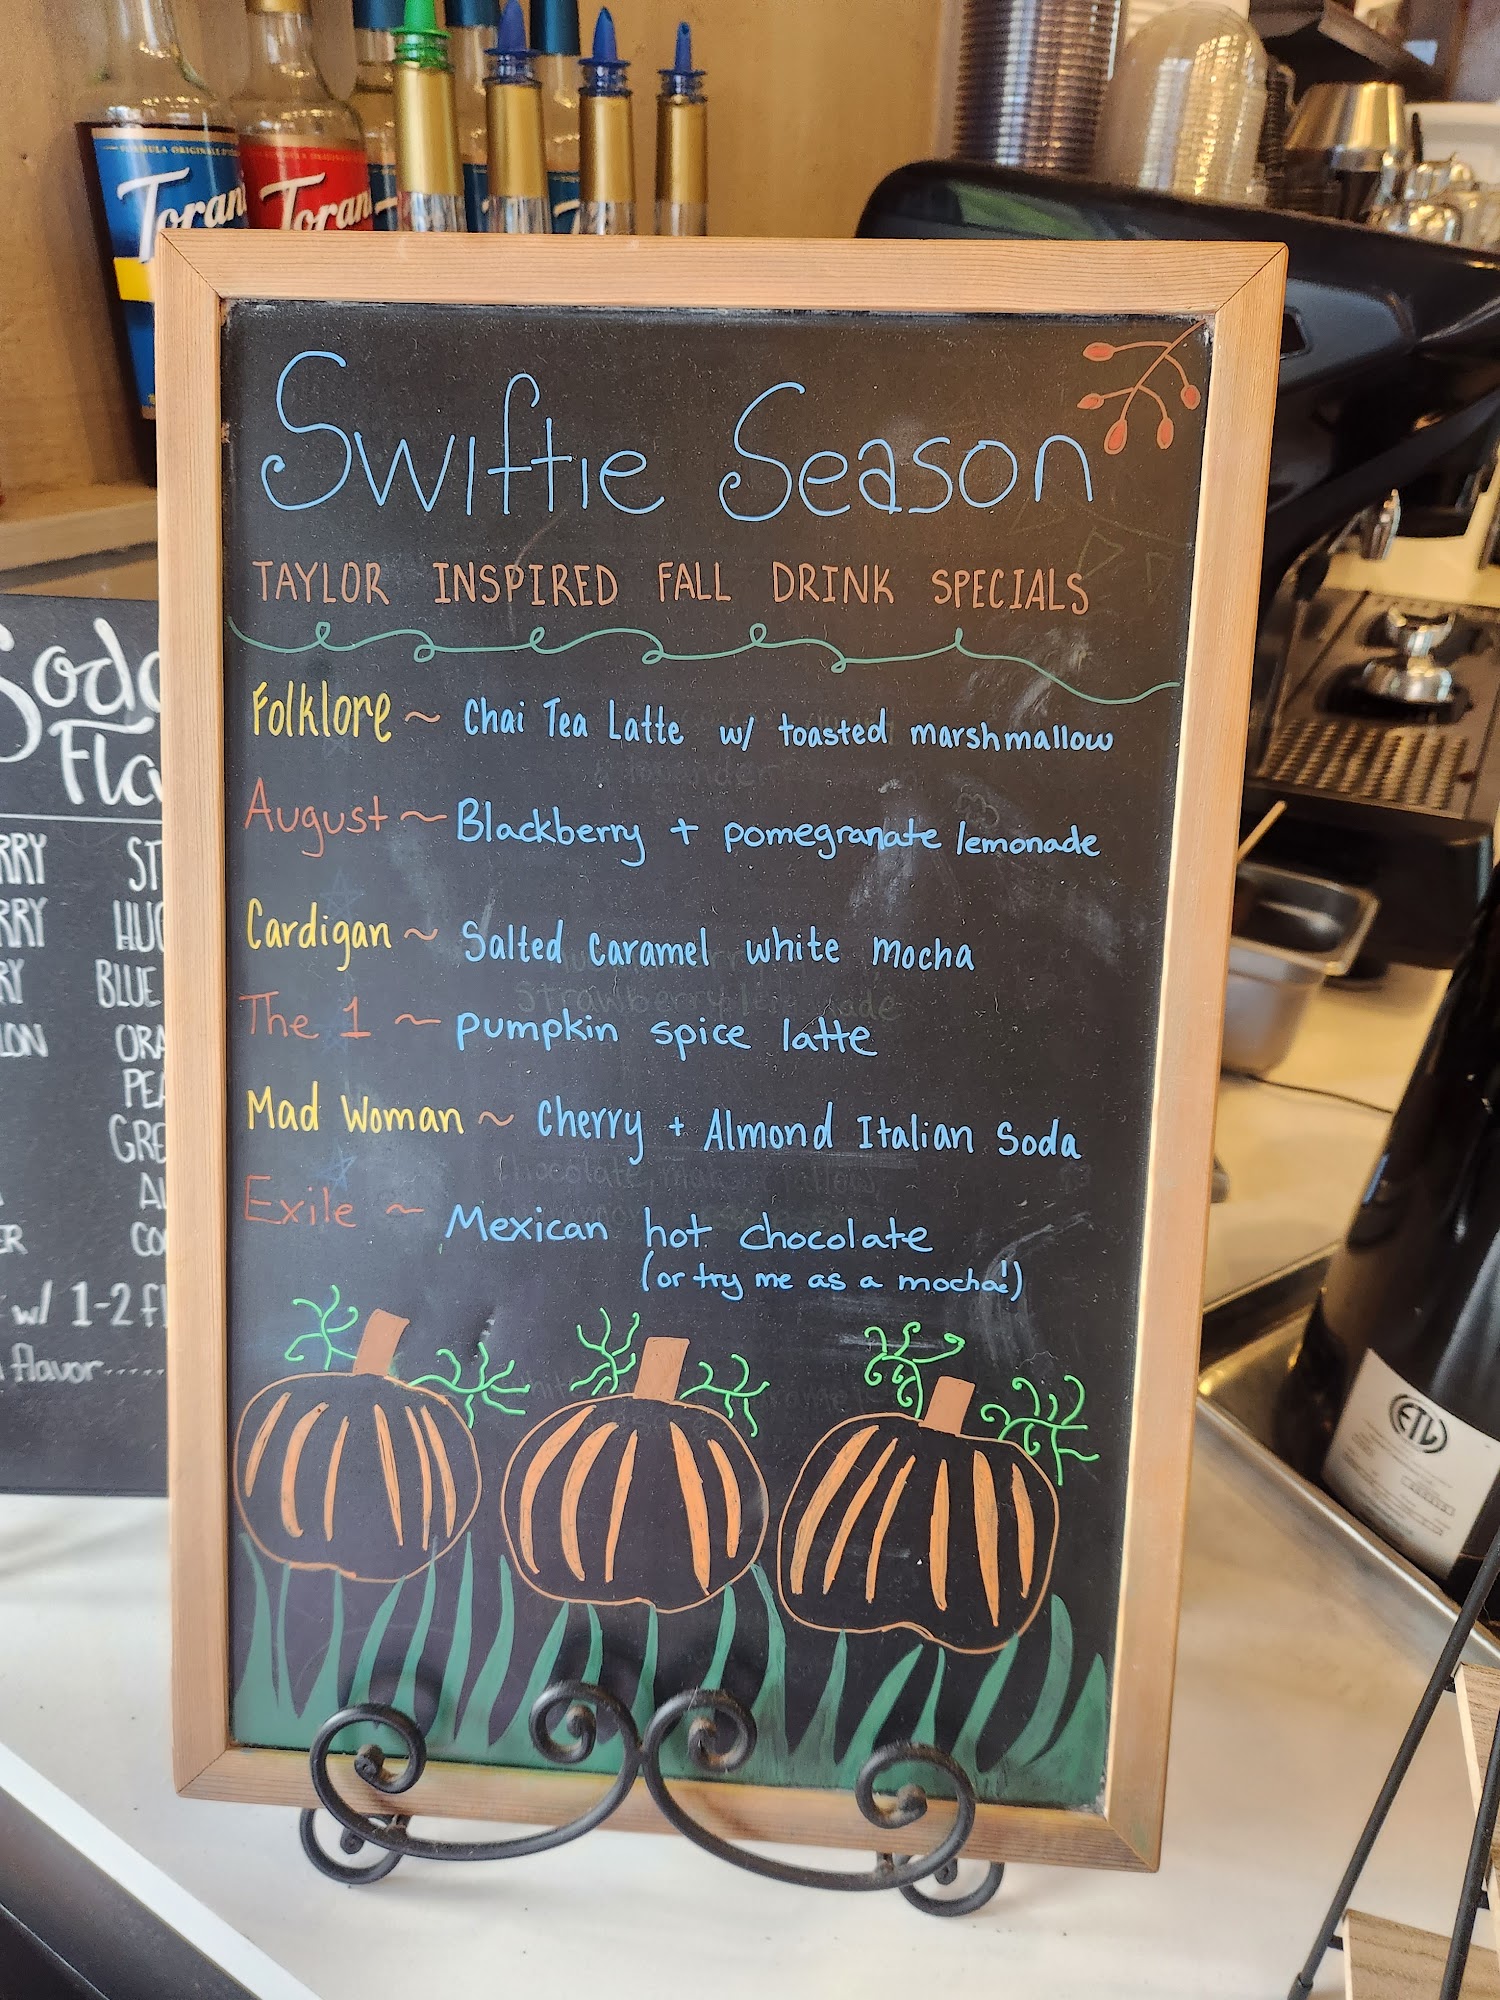 FORMULA ORIGINALE
Torani
Torani
Swiftie Season
TAYLOR INSPIRED FALL DRINK SPECIALS
Folklore ~ Chai Tea Latte w/ toasted marshmallow
August ~ Blackberry + pomegranate lemonade
Cardigan ~ Salted Caramel white mocha
The 1 ~ pumpkin spice latte
Mad Woman ~ Cherry + Almond Italian Soda
Exile ~ Mexican hot chocolate
(or try me as a mocha!)
Soda
Fla
RRY ST
RRY HUC
RY BLUE
LON ORA
PEA
GRE
AL
ER CO
w/ 1-2 fl
flavor......
ETL